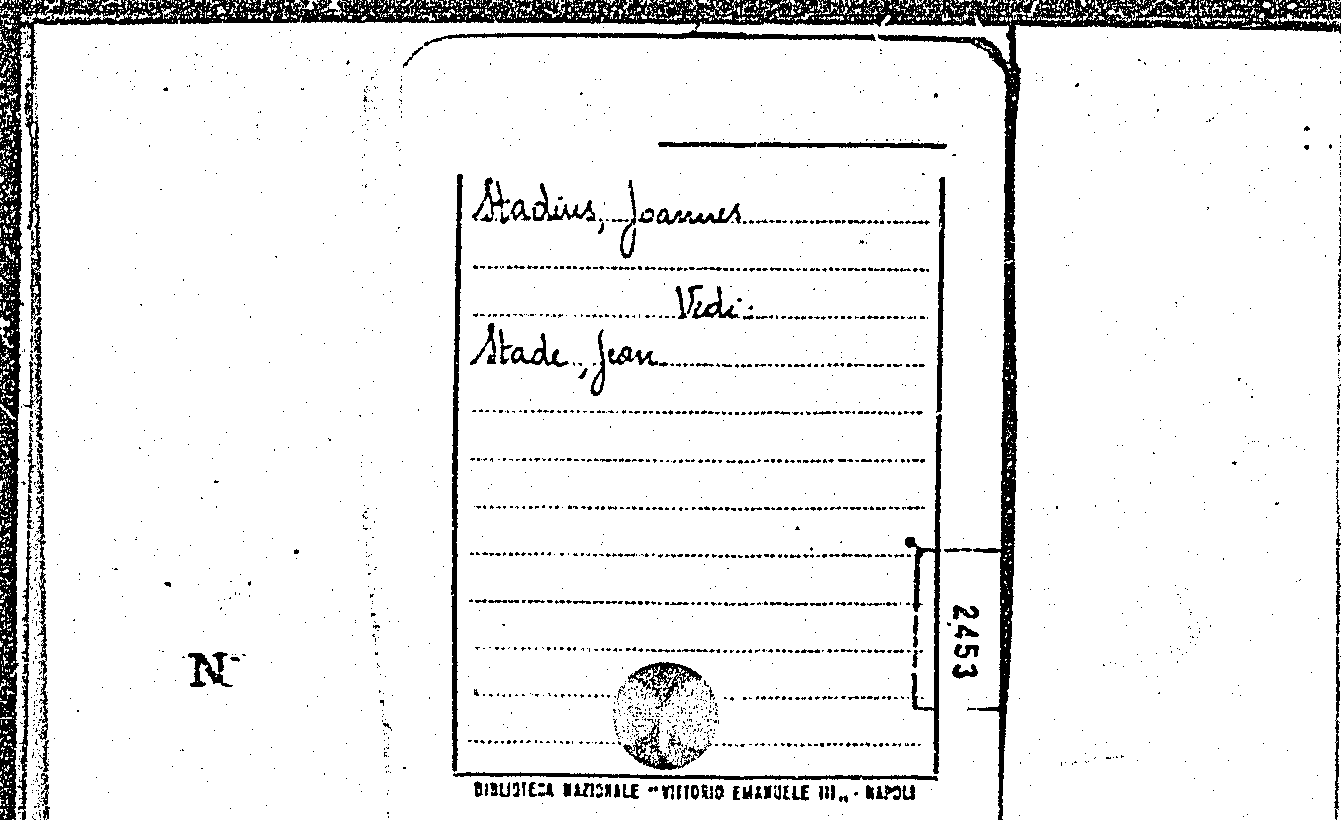 Stadius, Joannes
Vedi:
Stade, Jean
2453
N
BIBLIOTECA NAZIONALE "VITTORIO EMANUELE III„ - NAPOLI